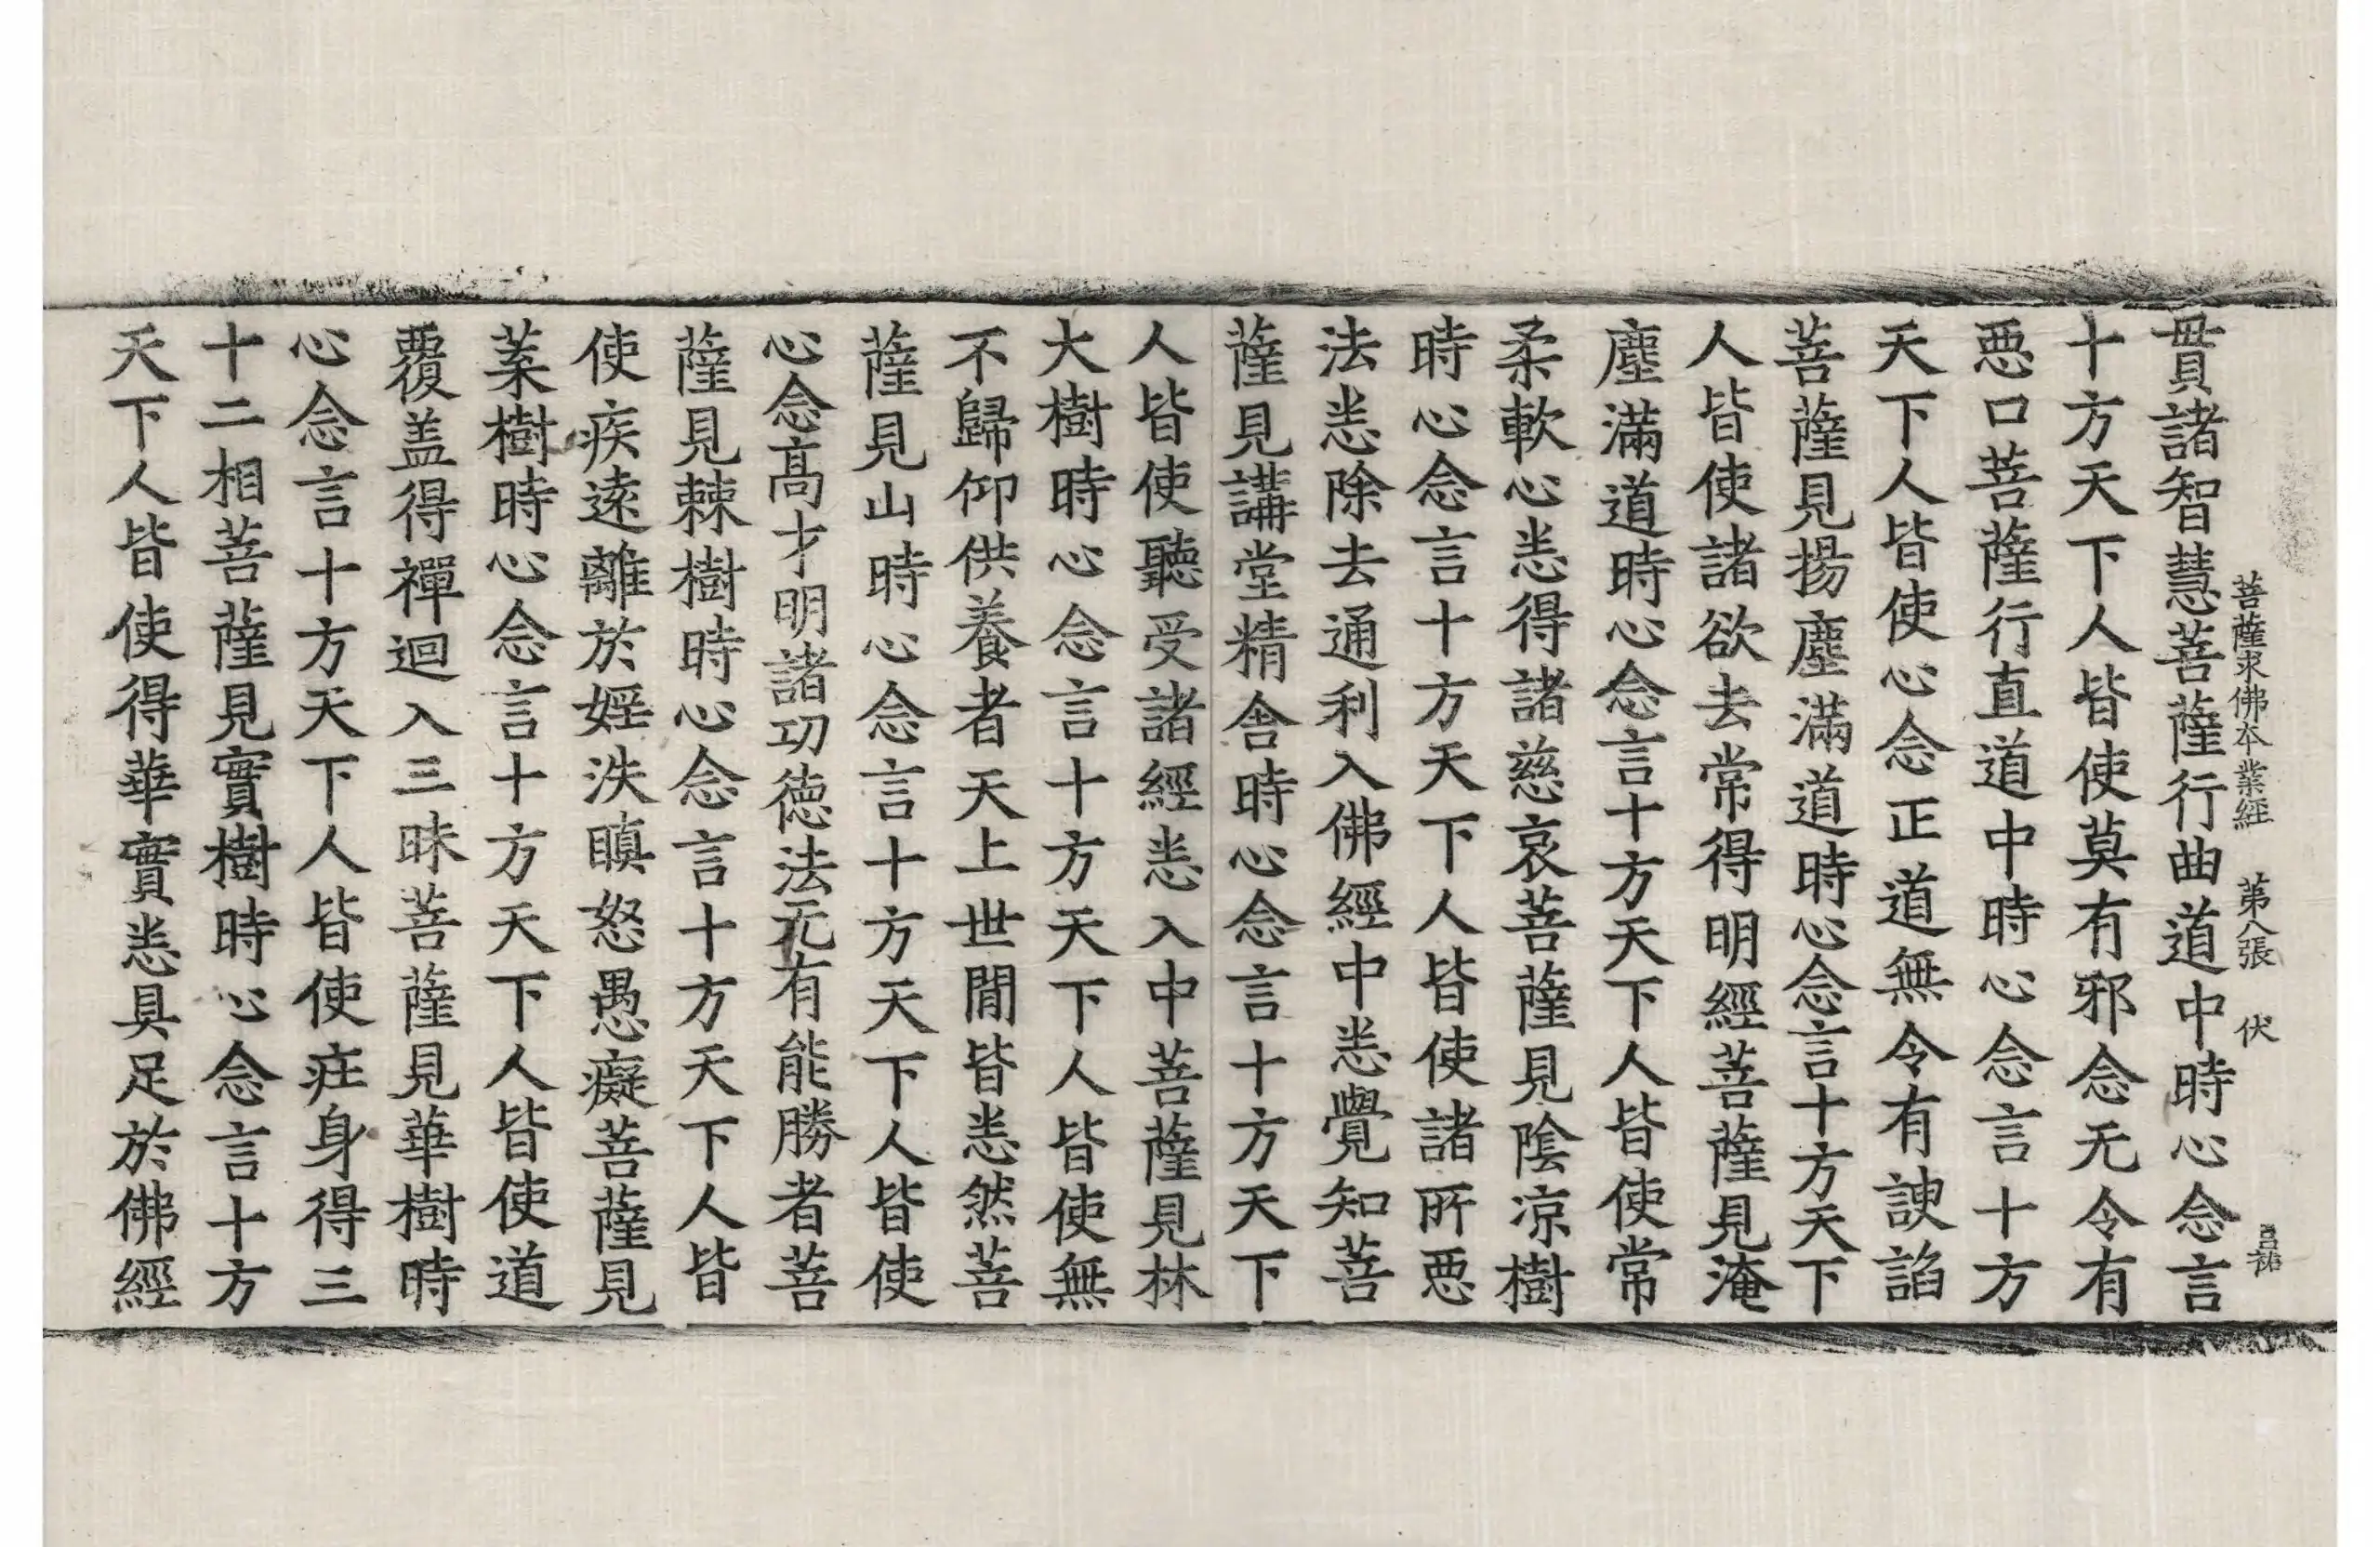 貫諸智慧菩薩行曲道中時心念言
菩薩求佛本業經 第八張 伏 呂祐
十方天下人皆使莫有邪念无令有
惡口菩薩行直道中時心念言十方
天下人皆使心念正道無令有諛諂
菩薩見揚塵滿道時心念言十方天下
人皆使諸欲去常得明經菩薩見淹
塵滿道時心念言十方天下人皆使常
柔軟心悉得諸慈哀菩薩見陰凉樹
時心念言十方天下人皆使諸所惡
法悉除去通利入佛經中悉覺知菩
薩見講堂精舍時心念言十方天下
人皆使聽受諸經悉入中菩薩見林
大樹時心念言十方天下人皆使無
不歸仰供養者天上世間皆悉然菩
薩見山時心念言十方天下人皆使
心念高才明諸功德法无有能勝者菩
薩見棘樹時心念言十方天下人皆
使疾遠離於婬泆瞋怒愚癡菩薩見
葉樹時心念言十方天下人皆使道
覆盖得禪迴入三昧菩薩見華樹時
心念言十方天下人皆使疘身得三
十二相菩薩見實樹時心念言十方
天下人皆使得華實悉具足於佛經